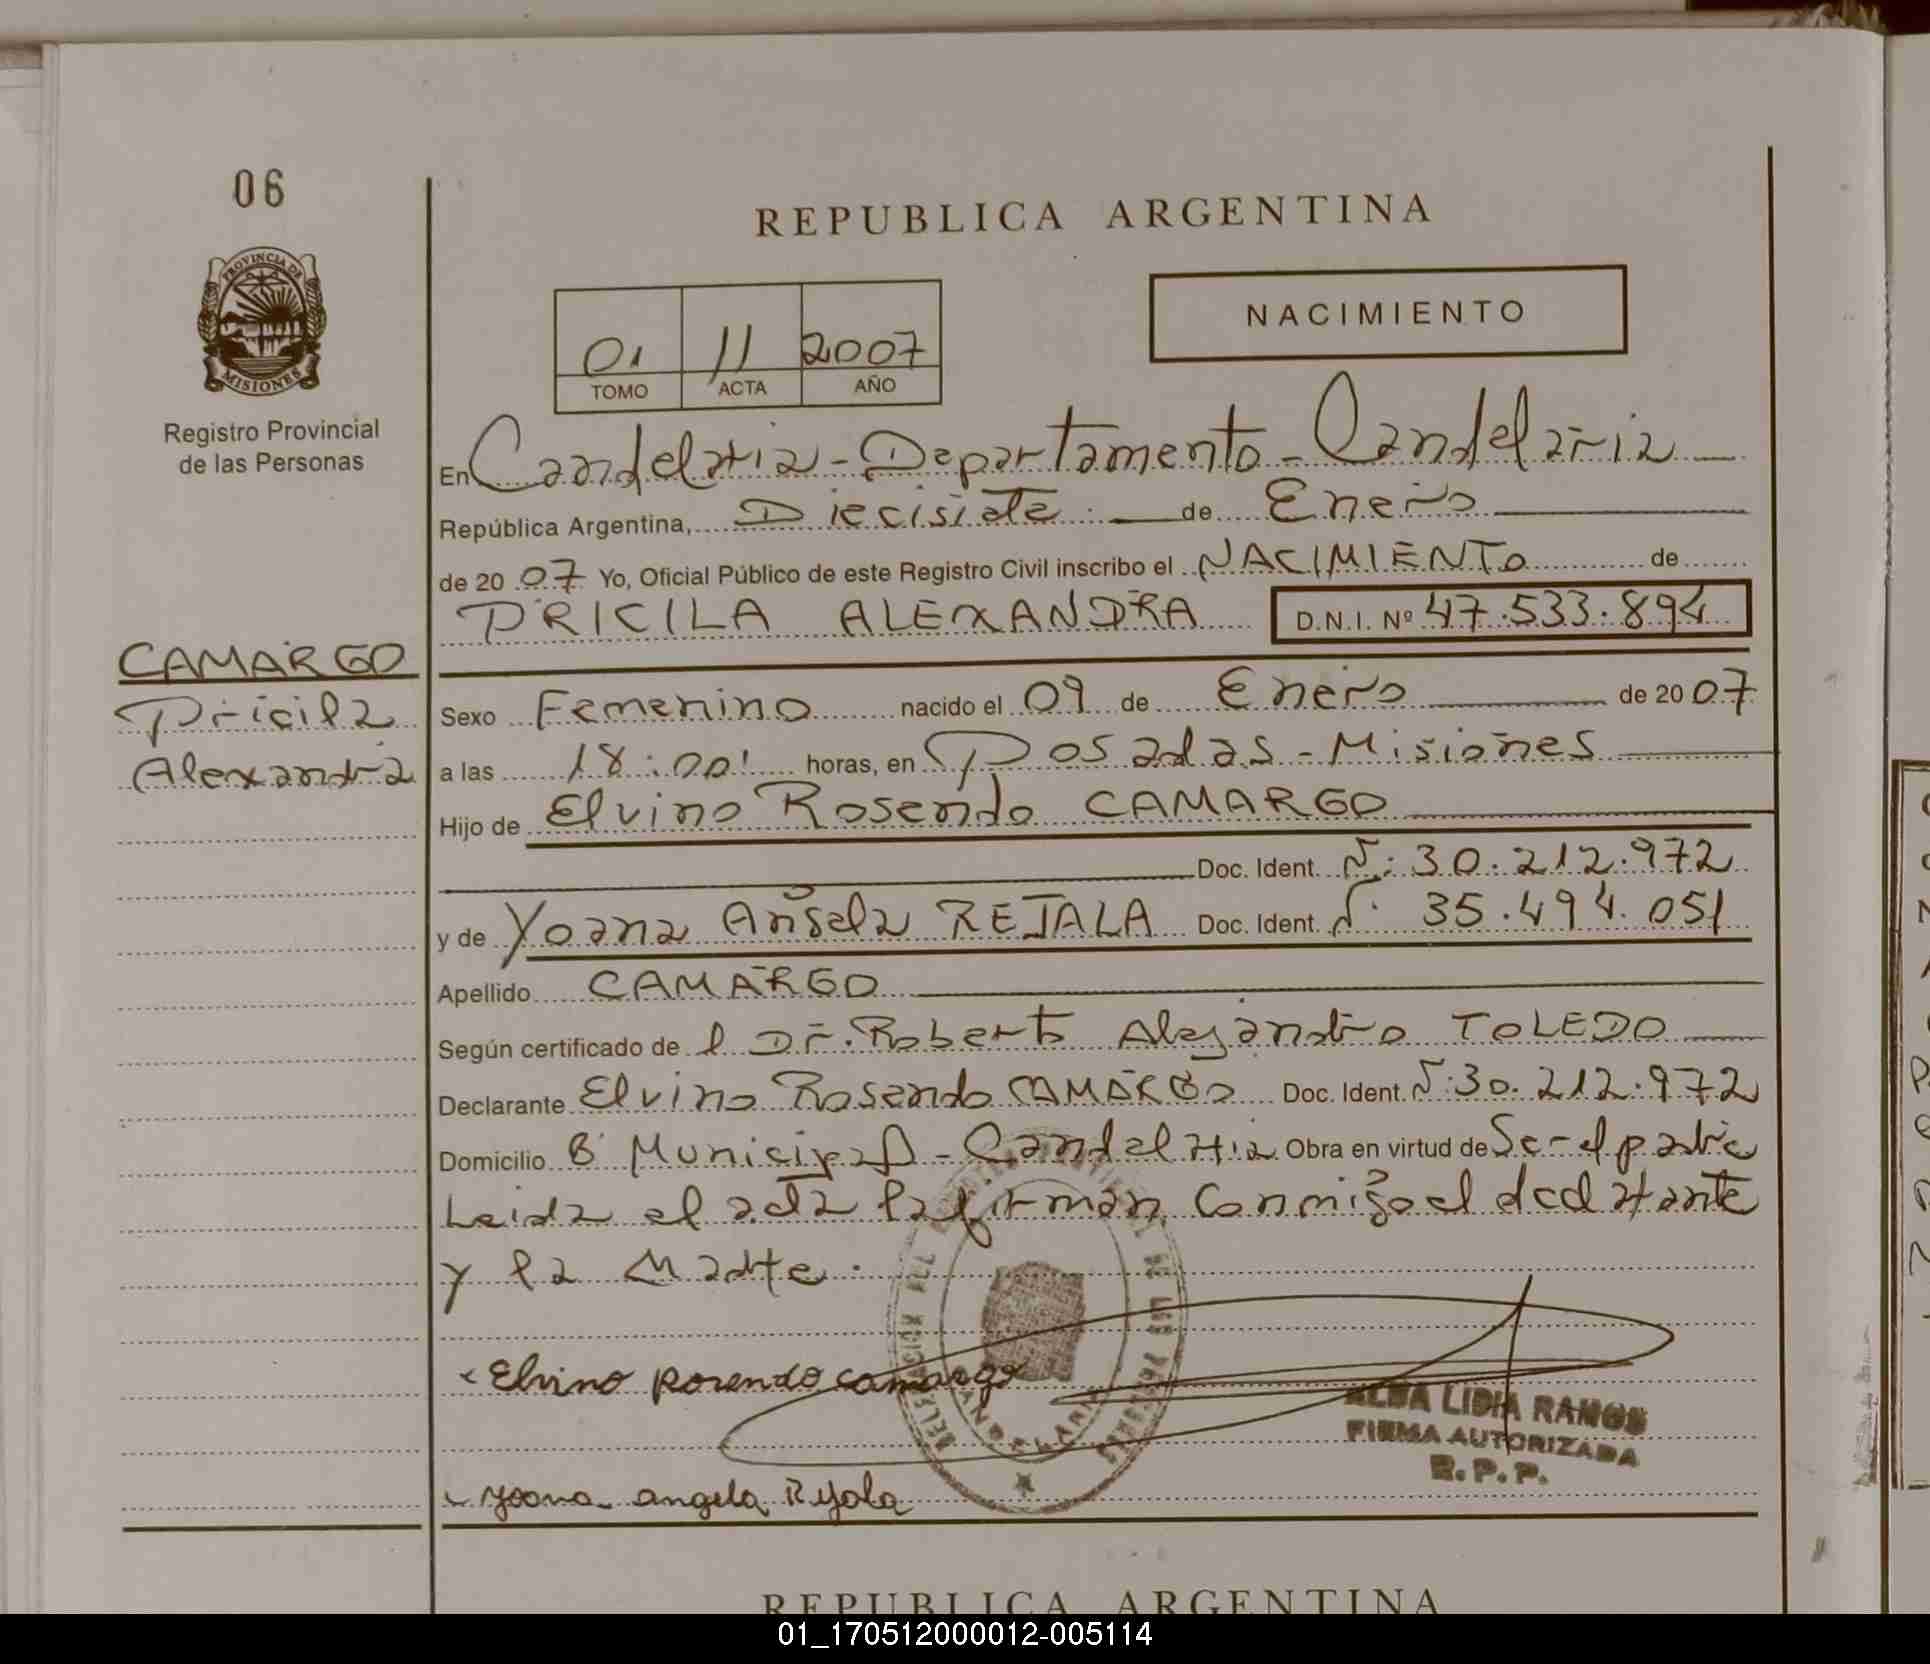 06
REPUBLICA ARGENTINA
PROVINCIA DE
MISIONES
Registro Provincial
de las Personas
NACIMIENTO
01 11 2007
TOMO ACTA AÑO
En Candelaria - Departamento - Candelaria
República Argentina, Diecisiete de Enero
de 20 07 Yo, Oficial Público de este Registro Civil inscribo el NACIMIENTO de
PRICILA ALEXANDRA D.N.I. Nº 47.533.894
CAMARGO
Pricila
Alexandra
Sexo Femenino nacido el 09 de Enero de 20 07
a las 18:00' horas, en Posadas - Misiones
Hijo de Elvino Rosendo CAMARGO
Doc. Ident. N: 30.212.972
y de Yoana Angela REJALA Doc. Ident. N: 35.494.051
Apellido CAMARGO
Según certificado de l Dr. Roberto Alejandro TOLEDO
Declarante Elvino Rosendo CAMARGO Doc. Ident. N: 30.212.972
Domicilio Bº Municipal - Candelaria Obra en virtud de Ser el padre
Leida el acta la firman conmigo el declarante
y la Madre.
Elvino Rosendo Camargo
ALBA LIDIA RAMOS
FIRMA AUTORIZADA
R.P.P.
Yoana angela Rejala
REPUBLICA ARGENTINA
01_170512000012-005114